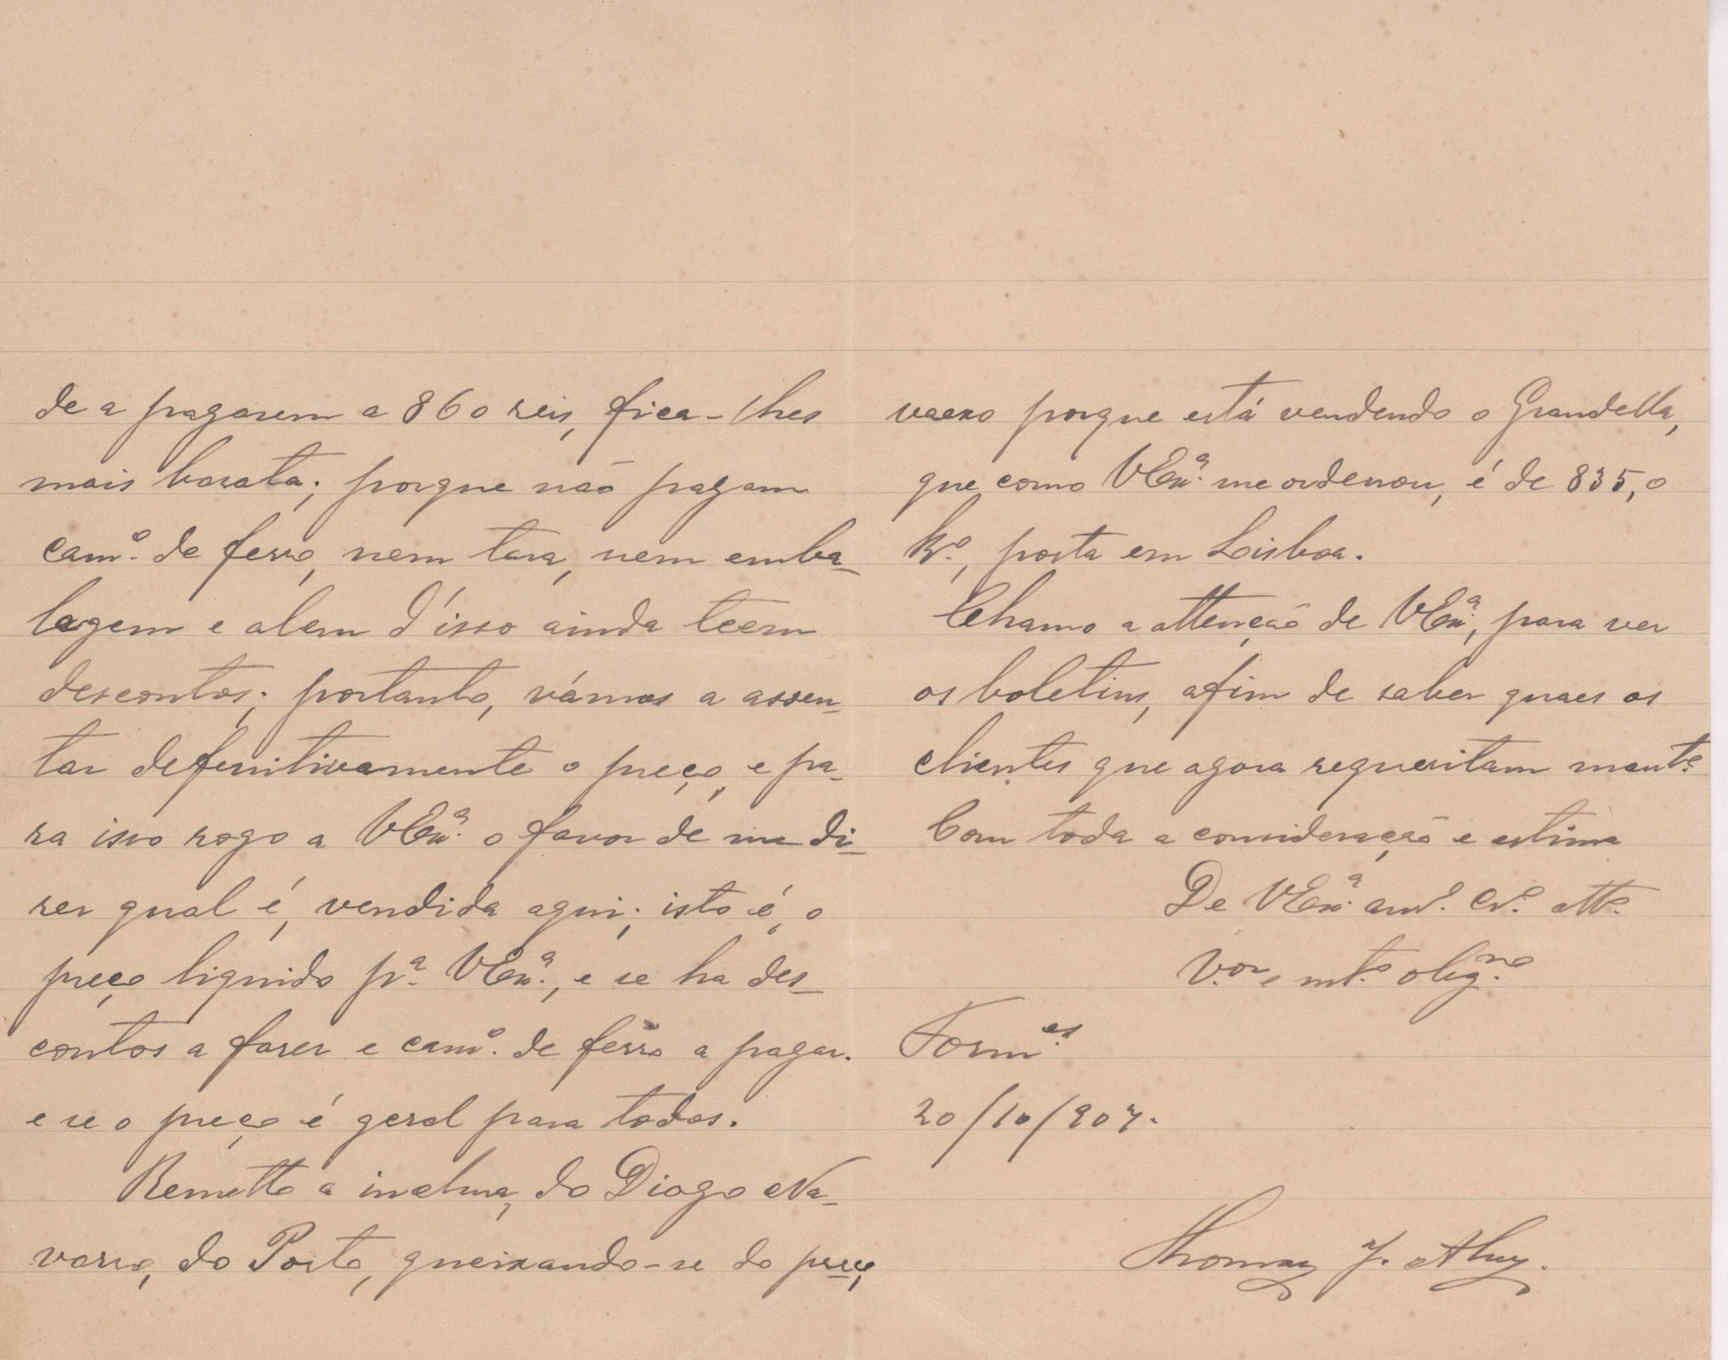 de a pagarem a 860 reis, fica-lhes
mais barata; porque não pagam
cam.º de ferro, nem tara, nem emba-
lagem e alem d'isso ainda teem
descontos; portanto, vámos a assen-
tar defenitivamente o preço, e pa-
ra isso rogo a VEx.ª o favor de me di-
zer qual é, vendida aqui; isto é, o
preço liquido p.ª VEx.ª, e se ha des-
contos a fazer e cam.º de ferro a pagar.
e se o preço é geral para todos.
Remetto a inclusa, do Diogo Na-
varro, do Porto, queixando-se do preço
porque está vendendo o Grandella,
que como VEx.ª me ordenou, é de 835, o
k.º, posta em Lisboa.
Chamo a attenção de VEx.ª, para ver
os boletins, afim de saber quaes os
clientes que agora requesitam mant.ª
Com toda a consideração e estima
De VEx.ª am.º cr.º att.º
V.or e mt.º obig.mo
Torm.es
20/10/907.
Thomaz J. Alvy.